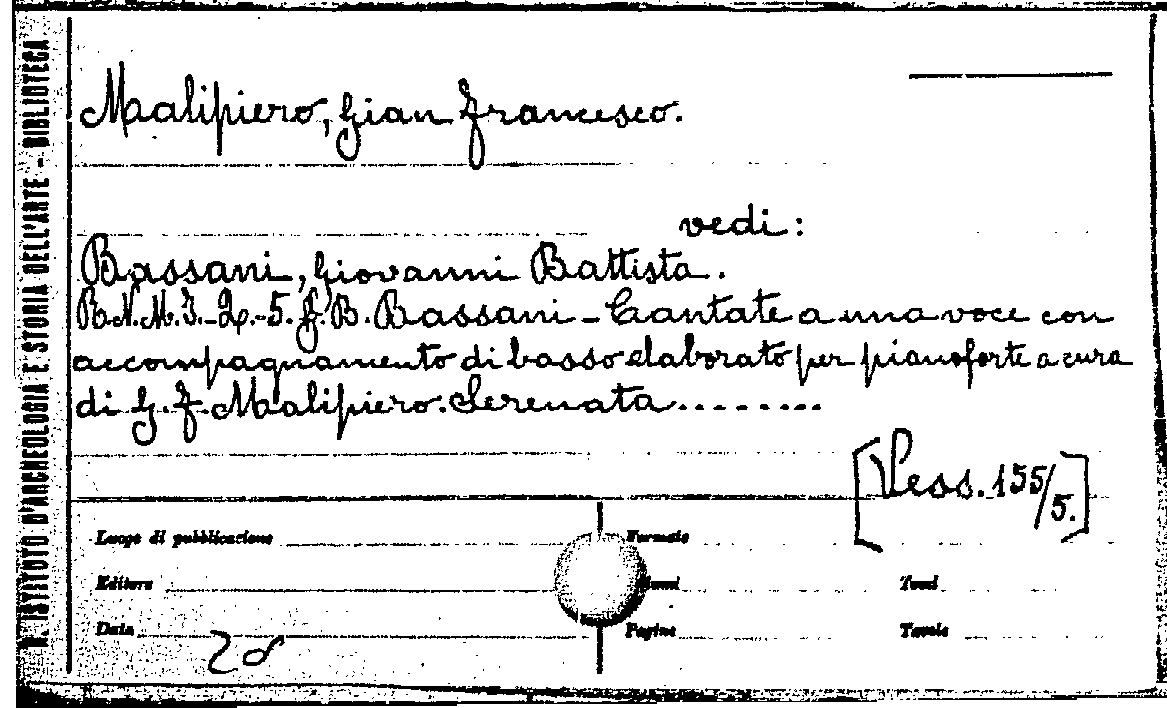 R. ISTITUTO D'ARCHEOLOGIA E STORIA DELL'ARTE - BIBLIOTECA
Malipiero, Gian Francesco.
vedi:
Bassani, Giovanni Battista.
R.N.M.I.-Q.-5. G.B. Bassani - Cantate a una voce con
accompagnamento di basso elaborato per pianoforte a cura
di G. F. Malipiero. Serenata.........
[Vess. 155/5.]
Luogo di pubblicazione Formato
Editore Tomi
Data 28 Pagine Tavole